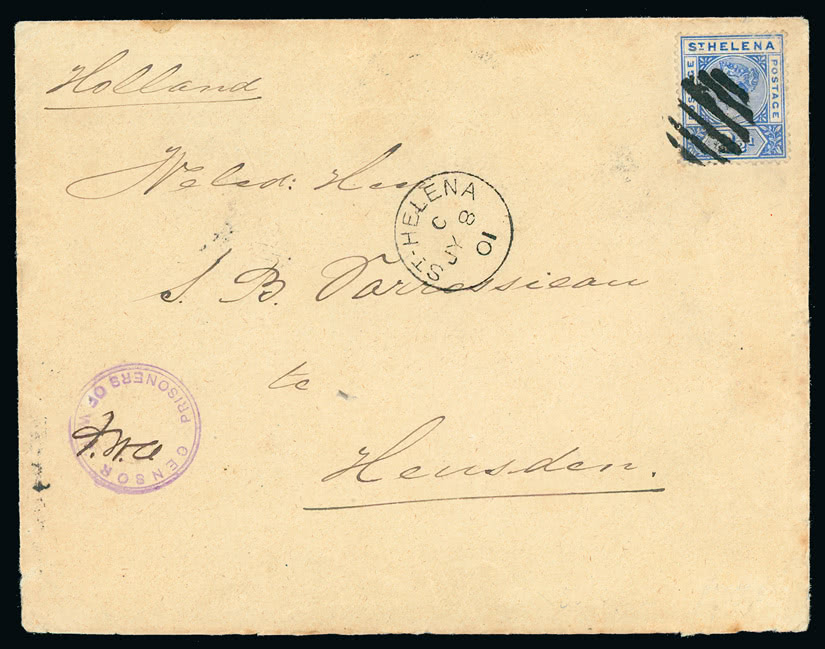 ST HELENA
POSTAGE
POSTAGE
Holland
Weled: Heer
ST. HELENA
C
JY 8
01
S. B. Varressieau
te
Heusden.
CENSOR
PRISONERS OF W